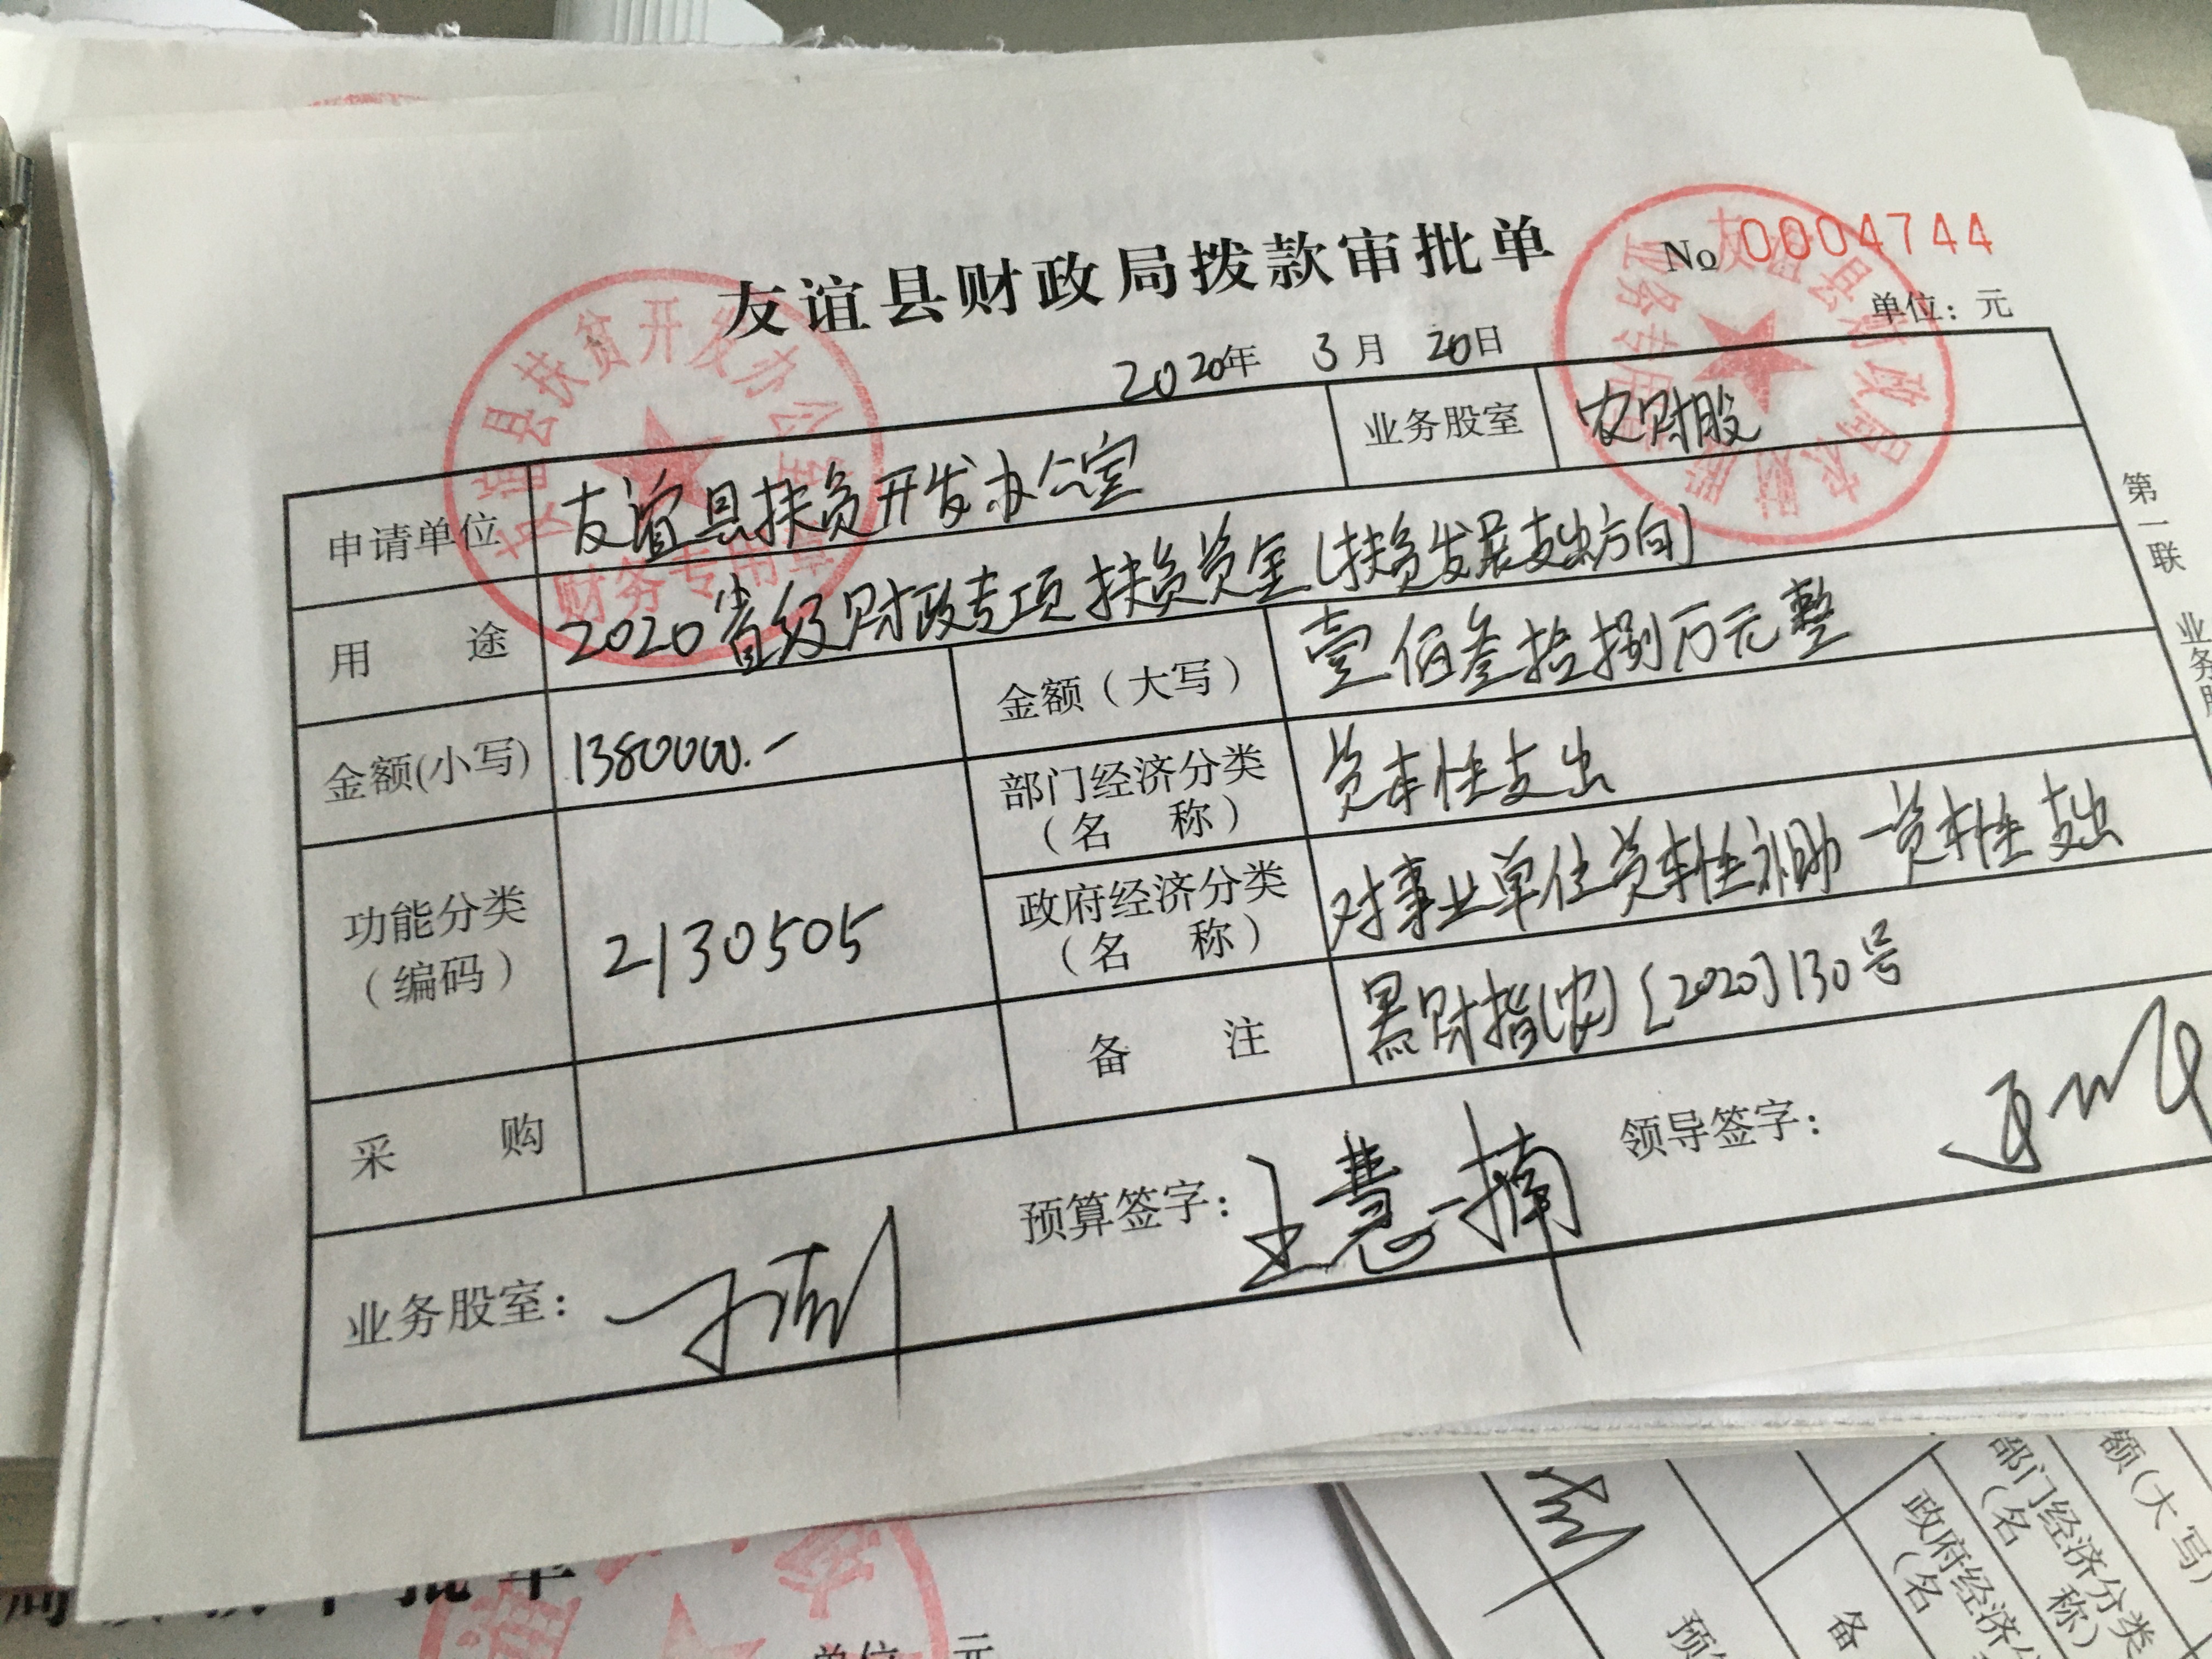 友谊县财政局拨款审批单
No 0004744
2020年 3月 20日
单位：元
申请单位 友谊县扶贫开发办公室 业务股室 农财股
用途 2020省级财政专项扶贫资金(扶贫发展支出方向)
金额(小写) 1380000.- 金额（大写） 壹佰叁拾捌万元整
部门经济分类（名称） 资本性支出
功能分类（编码） 2130505
政府经济分类（名称） 对事业单位资本性补助-资本性支出
采购
备注 黑财指(农)〔2020〕130号
业务股室：
预算签字： 王慧楠
领导签字：
第一联 业务股
友谊县扶贫开发办公室
财务专用章
友谊县财政局农财股
业务专用章
额(大写)
部门经济分类
（名称）
政府经济分
（名
备
预
单位 元